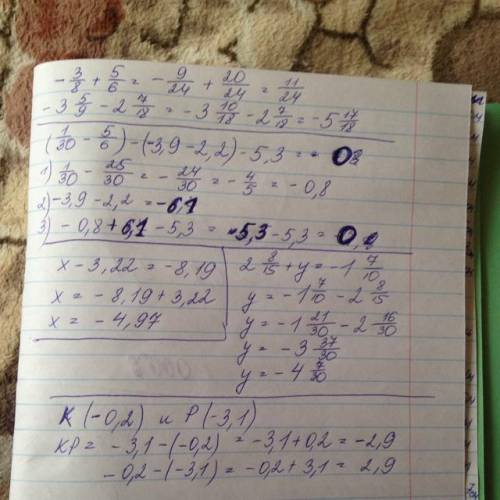 -3/8 + 5/6 = -9/24 + 20/24 = 11/24
-3 5/9 - 2 7/18 = -3 10/18 - 2 7/18 = -5 17/18
(1/30 - 5/6) - (-3,9 - 2,2) - 5,3 =
1) 1/30 - 25/30 = -24/30 = -4/5 = -0,8
2) -3,9 - 2,2 = -6,1
3) -0,8 + 6,1 - 5,3 = 5,3 - 5,3 =
x - 3,22 = -8,19
x = -8,19 + 3,22
x = -4,97
2 8/15 + y = -1 7/10
y = -1 7/10 - 2 8/15
y = -1 21/30 - 2 16/30
y = -3 37/30
y = -4 7/30
K (-0,2) и P (-3,1)
KP = -3,1 - (-0,2) = -3,1 + 0,2 = -2,9
-0,2 - (-3,1) = -0,2 + 3,1 = 2,9